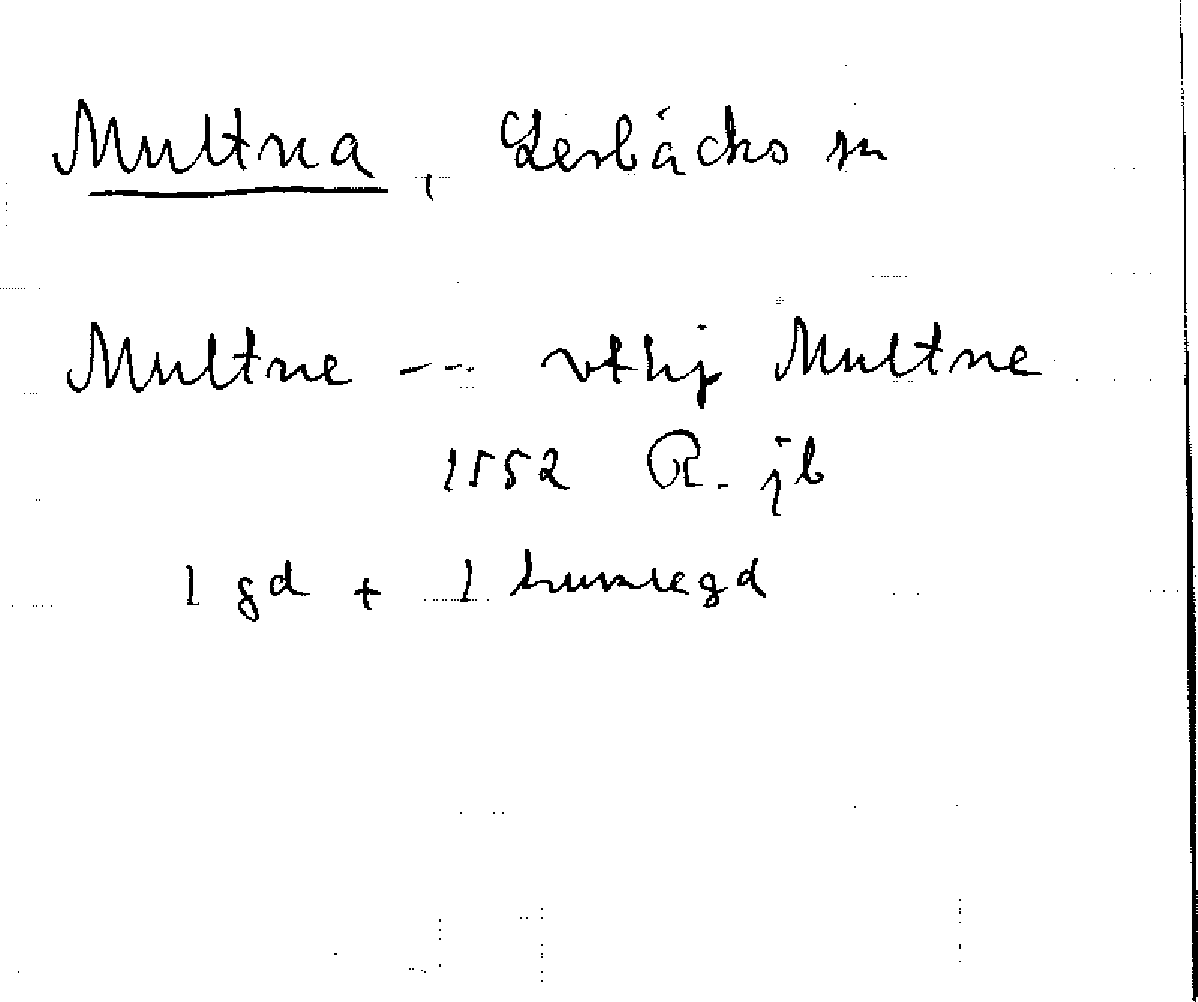 Multna, Lerbäcks sn
Multne --- vthj Multne
1552 R. jb
1 gd + 1 humlegd